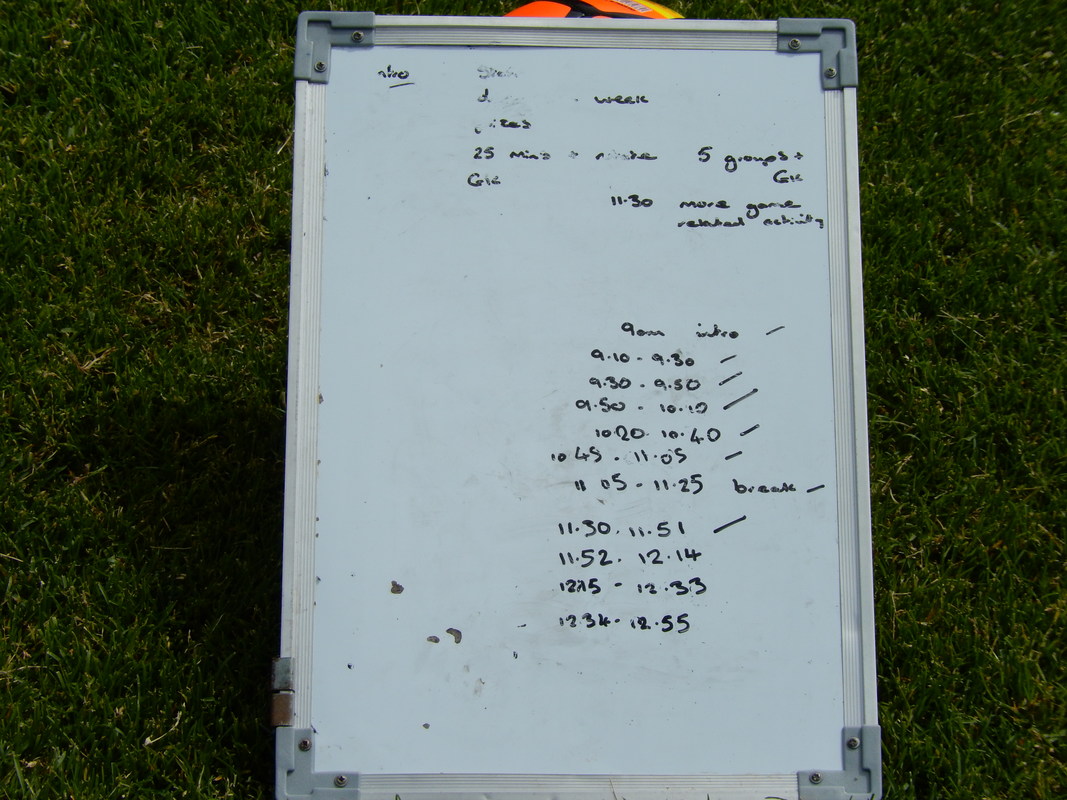 week
25 mins + rotate 5 groups +
GK GK
11.30 more game
related activity
9am intro
9.10 - 9.30
9.30 - 9.50
9.50 - 10.10
10.20 - 10.40
10.45 - 11.05
11.05 - 11.25 break
11.30 - 11.51
11.52 - 12.14
12.15 - 12.33
12.34 - 12.55